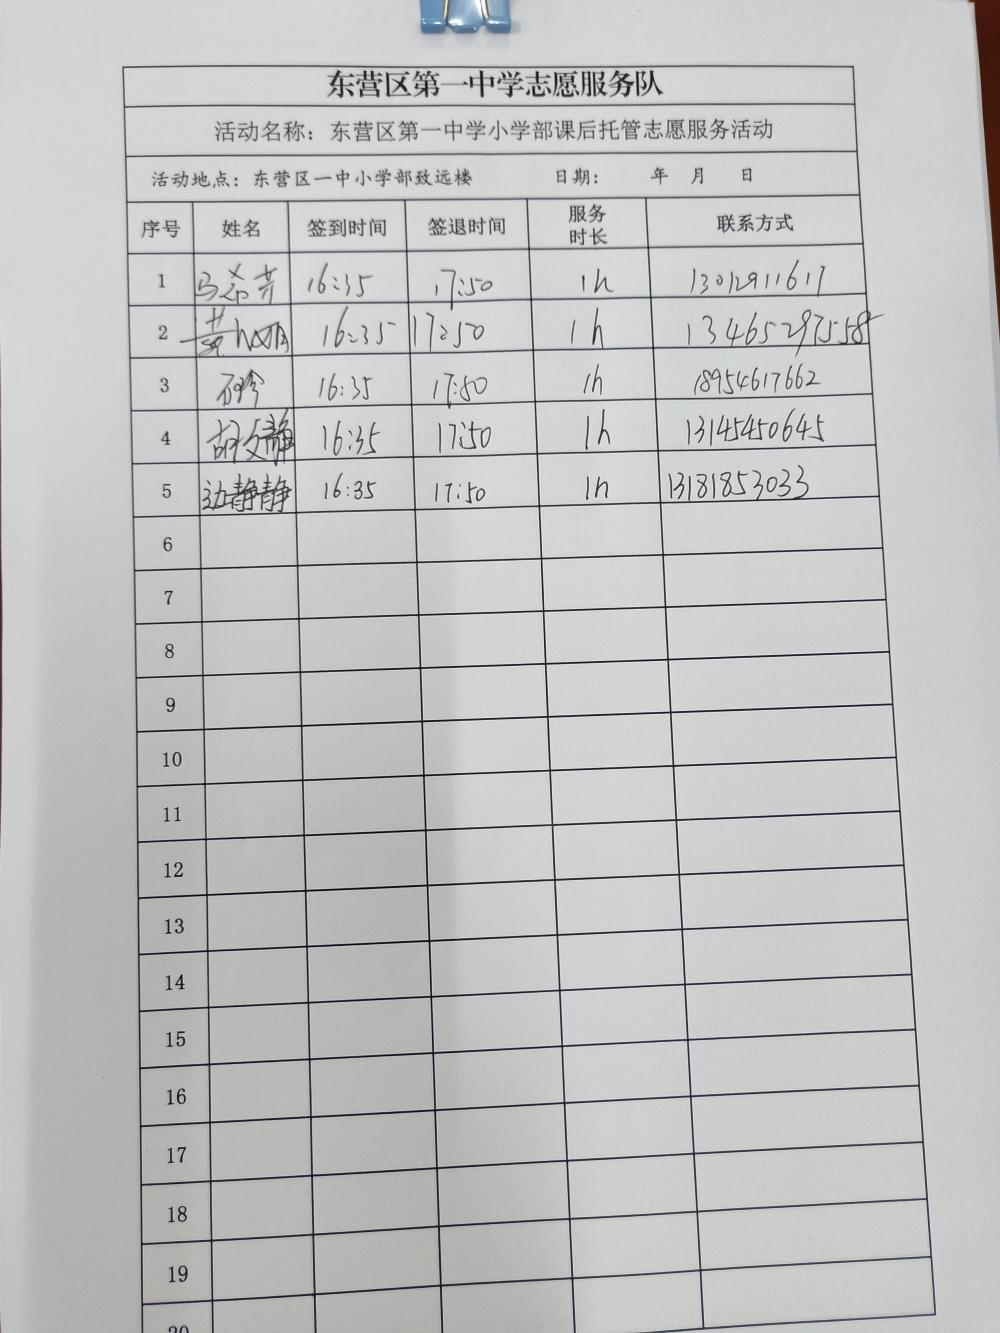 东营区第一中学志愿服务队
活动名称：东营区第一中学小学部课后托管志愿服务活动
活动地点：东营区一中小学部致远楼 日期： 年 月 日
序号 姓名 签到时间 签退时间 服务时长 联系方式
1 马希芹 16:35 17:50 1h 13012911617
2 16:35 17:50 1h 13465297558
3 石玲 16:35 17:50 1h 18954617662
4 胡文静 16:35 17:50 1h 13145450645
5 边静静 16:35 17:50 1h 13181853033
6
7
8
9
10
11
12
13
14
15
16
17
18
19
20